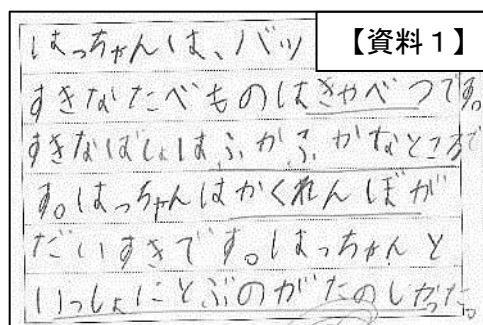 【資料1】
はっちゃんは、バッ
すきなたべものはきゃべつです。
すきなばしょはふかふかなところで
す。はっちゃんはかくれんぼが
だいすきです。はっちゃんと
いっしょにとぶのがたのしかった。